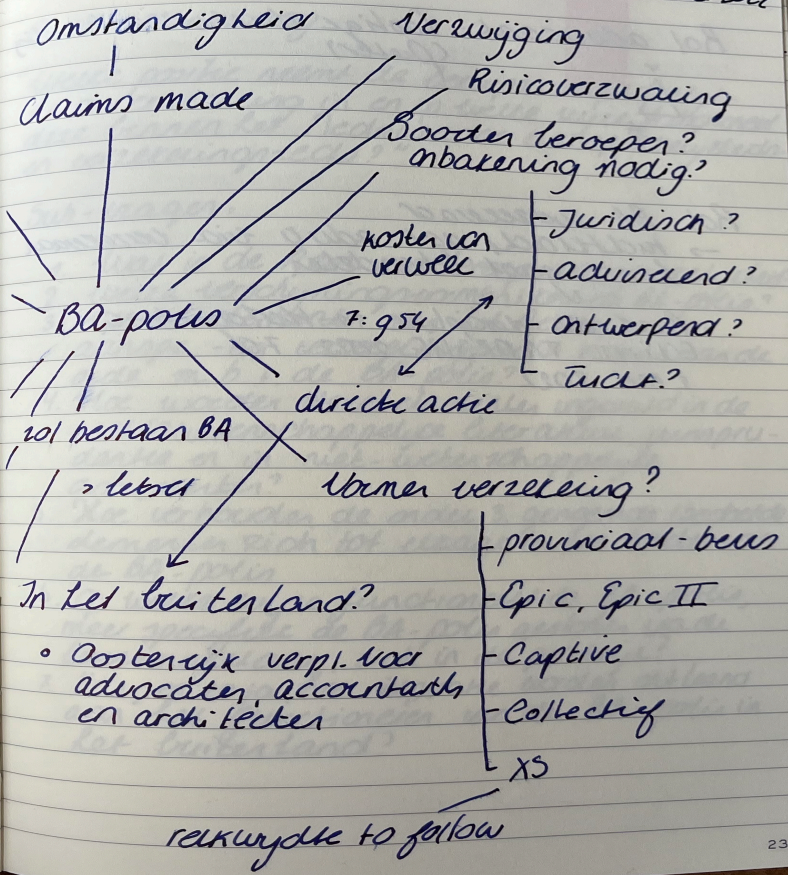 Omstandigheid
Verzwijging
Claims made
Risicoverzwaring
Soorten beroepen?
afbakening nodig?
Juridisch?
adviserend?
ontwerpend?
Tucht?
kosten van
verweer
BA-polis
7:954
directe actie
rol bestaan BA
> letsel
Vormen verzekering?
provinciaal - beurs
Epic, Epic II
Captive
Collectief
XS
In het buitenland?
• Oostenrijk verpl. voor
advocaten, accountants
en architecten
reikwijdte to follow
23